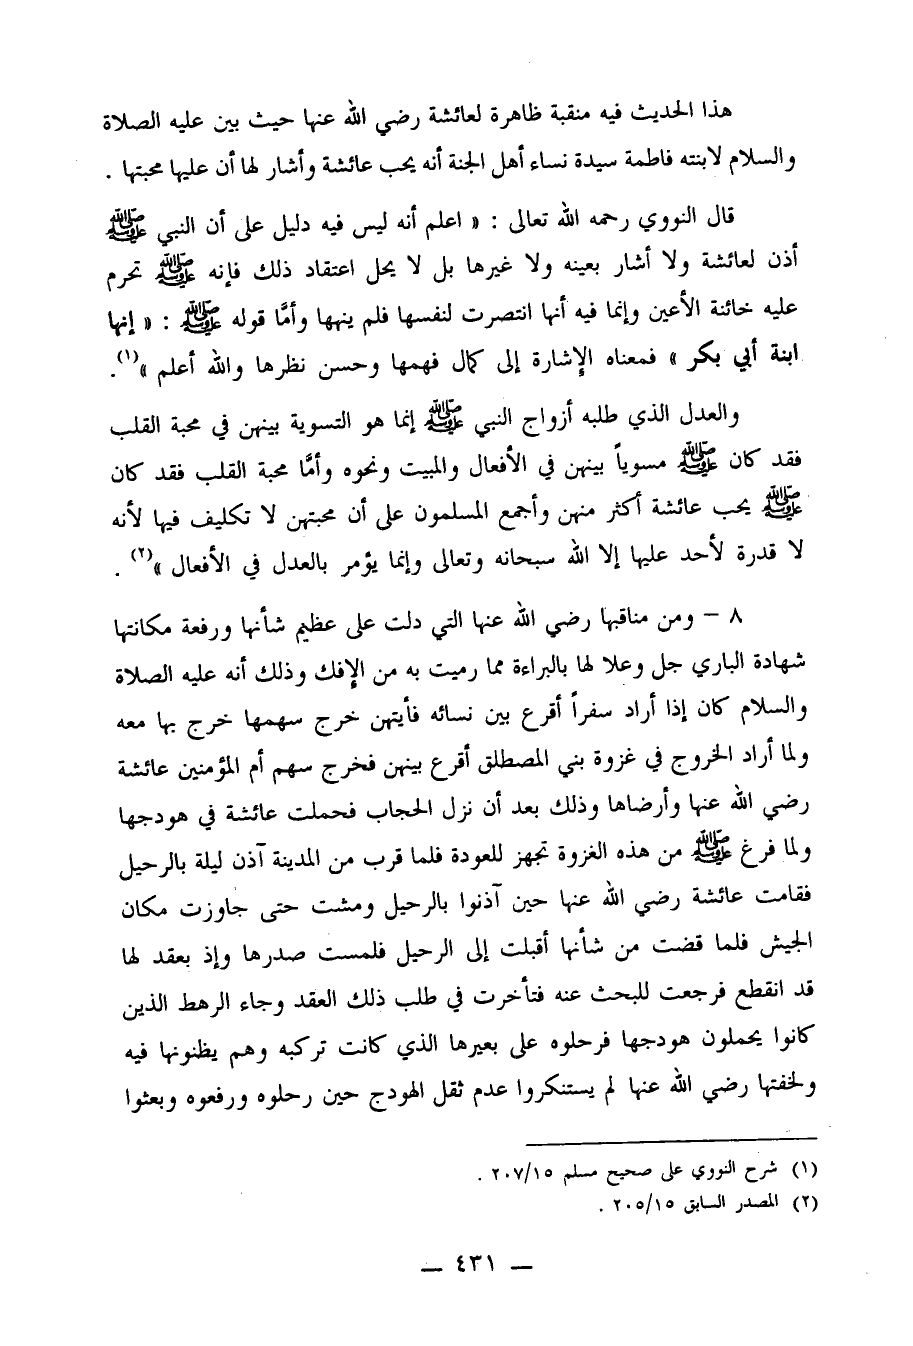 هذا الحديث فيه منقبة ظاهرة لعائشة رضي الله عنها حيث بين عليه الصلاة
والسلام لابنته فاطمة سيدة نساء أهل الجنة أنه يحب عائشة وأشار لها أن عليها محبتها .
قال النووي رحمه الله تعالى : « اعلم أنه ليس فيه دليل على أن النبي ﷺ
أذن لعائشة ولا أشار بعينه ولا غيرها بل لا يحل اعتقاد ذلك فإنه ﷺ تحرم
عليه خائنة الأعين وإنما فيه أنها انتصرت لنفسها فلم ينهها وأمَّا قوله ﷺ : « إنها
ابنة أبي بكر » فمعناه الإشارة إلى كمال فهمها وحسن نظرها والله أعلم »(١).
والعدل الذي طلبه أزواج النبي ﷺ إنما هو التسوية بينهن في محبة القلب
فقد كان ﷺ مسوياً بينهن في الأفعال والمبيت ونحوه وأمَّا محبة القلب فقد كان
ﷺ يحب عائشة أكثر منهن وأجمع المسلمون على أن محبتهن لا تكليف فيها لأنه
لا قدرة لأحد عليها إلا الله سبحانه وتعالى وإنما يؤمر بالعدل في الأفعال »(٢) .
٨ – ومن مناقبها رضي الله عنها التي دلت على عظيم شأنها ورفعة مكانتها
شهادة الباري جل وعلا لها بالبراءة مما رميت به من الإفك وذلك أنه عليه الصلاة
والسلام كان إذا أراد سفراً أقرع بين نسائه فأيتهن خرج سهمها خرج بها معه
ولما أراد الخروج في غزوة بني المصطلق أقرع بينهن فخرج سهم أم المؤمنين عائشة
رضي الله عنها وأرضاها وذلك بعد أن نزل الحجاب فحملت عائشة في هودجها
ولما فرغ ﷺ من هذه الغزوة تجهز للعودة فلما قرب من المدينة آذن ليلة بالرحيل
فقامت عائشة رضي الله عنها حين آذنوا بالرحيل ومشت حتى جاوزت مكان
الجيش فلما قضت من شأنها أقبلت إلى الرحيل فلمست صدرها وإذ بعقد لها
قد انقطع فرجعت للبحث عنه فتأخرت في طلب ذلك العقد وجاء الرهط الذين
كانوا يحملون هودجها فرحلوه على بعيرها الذي كانت تركبه وهم يظنونها فيه
ولخفتها رضي الله عنها لم يستنكروا عدم ثقل الهودج حين رحلوه ورفعوه وبعثوا
(١) شرح النووي على صحيح مسلم ٢٠٧/١٥ .
(٢) المصدر السابق ٢٠٥/١٥ .
— ٤٣١ —